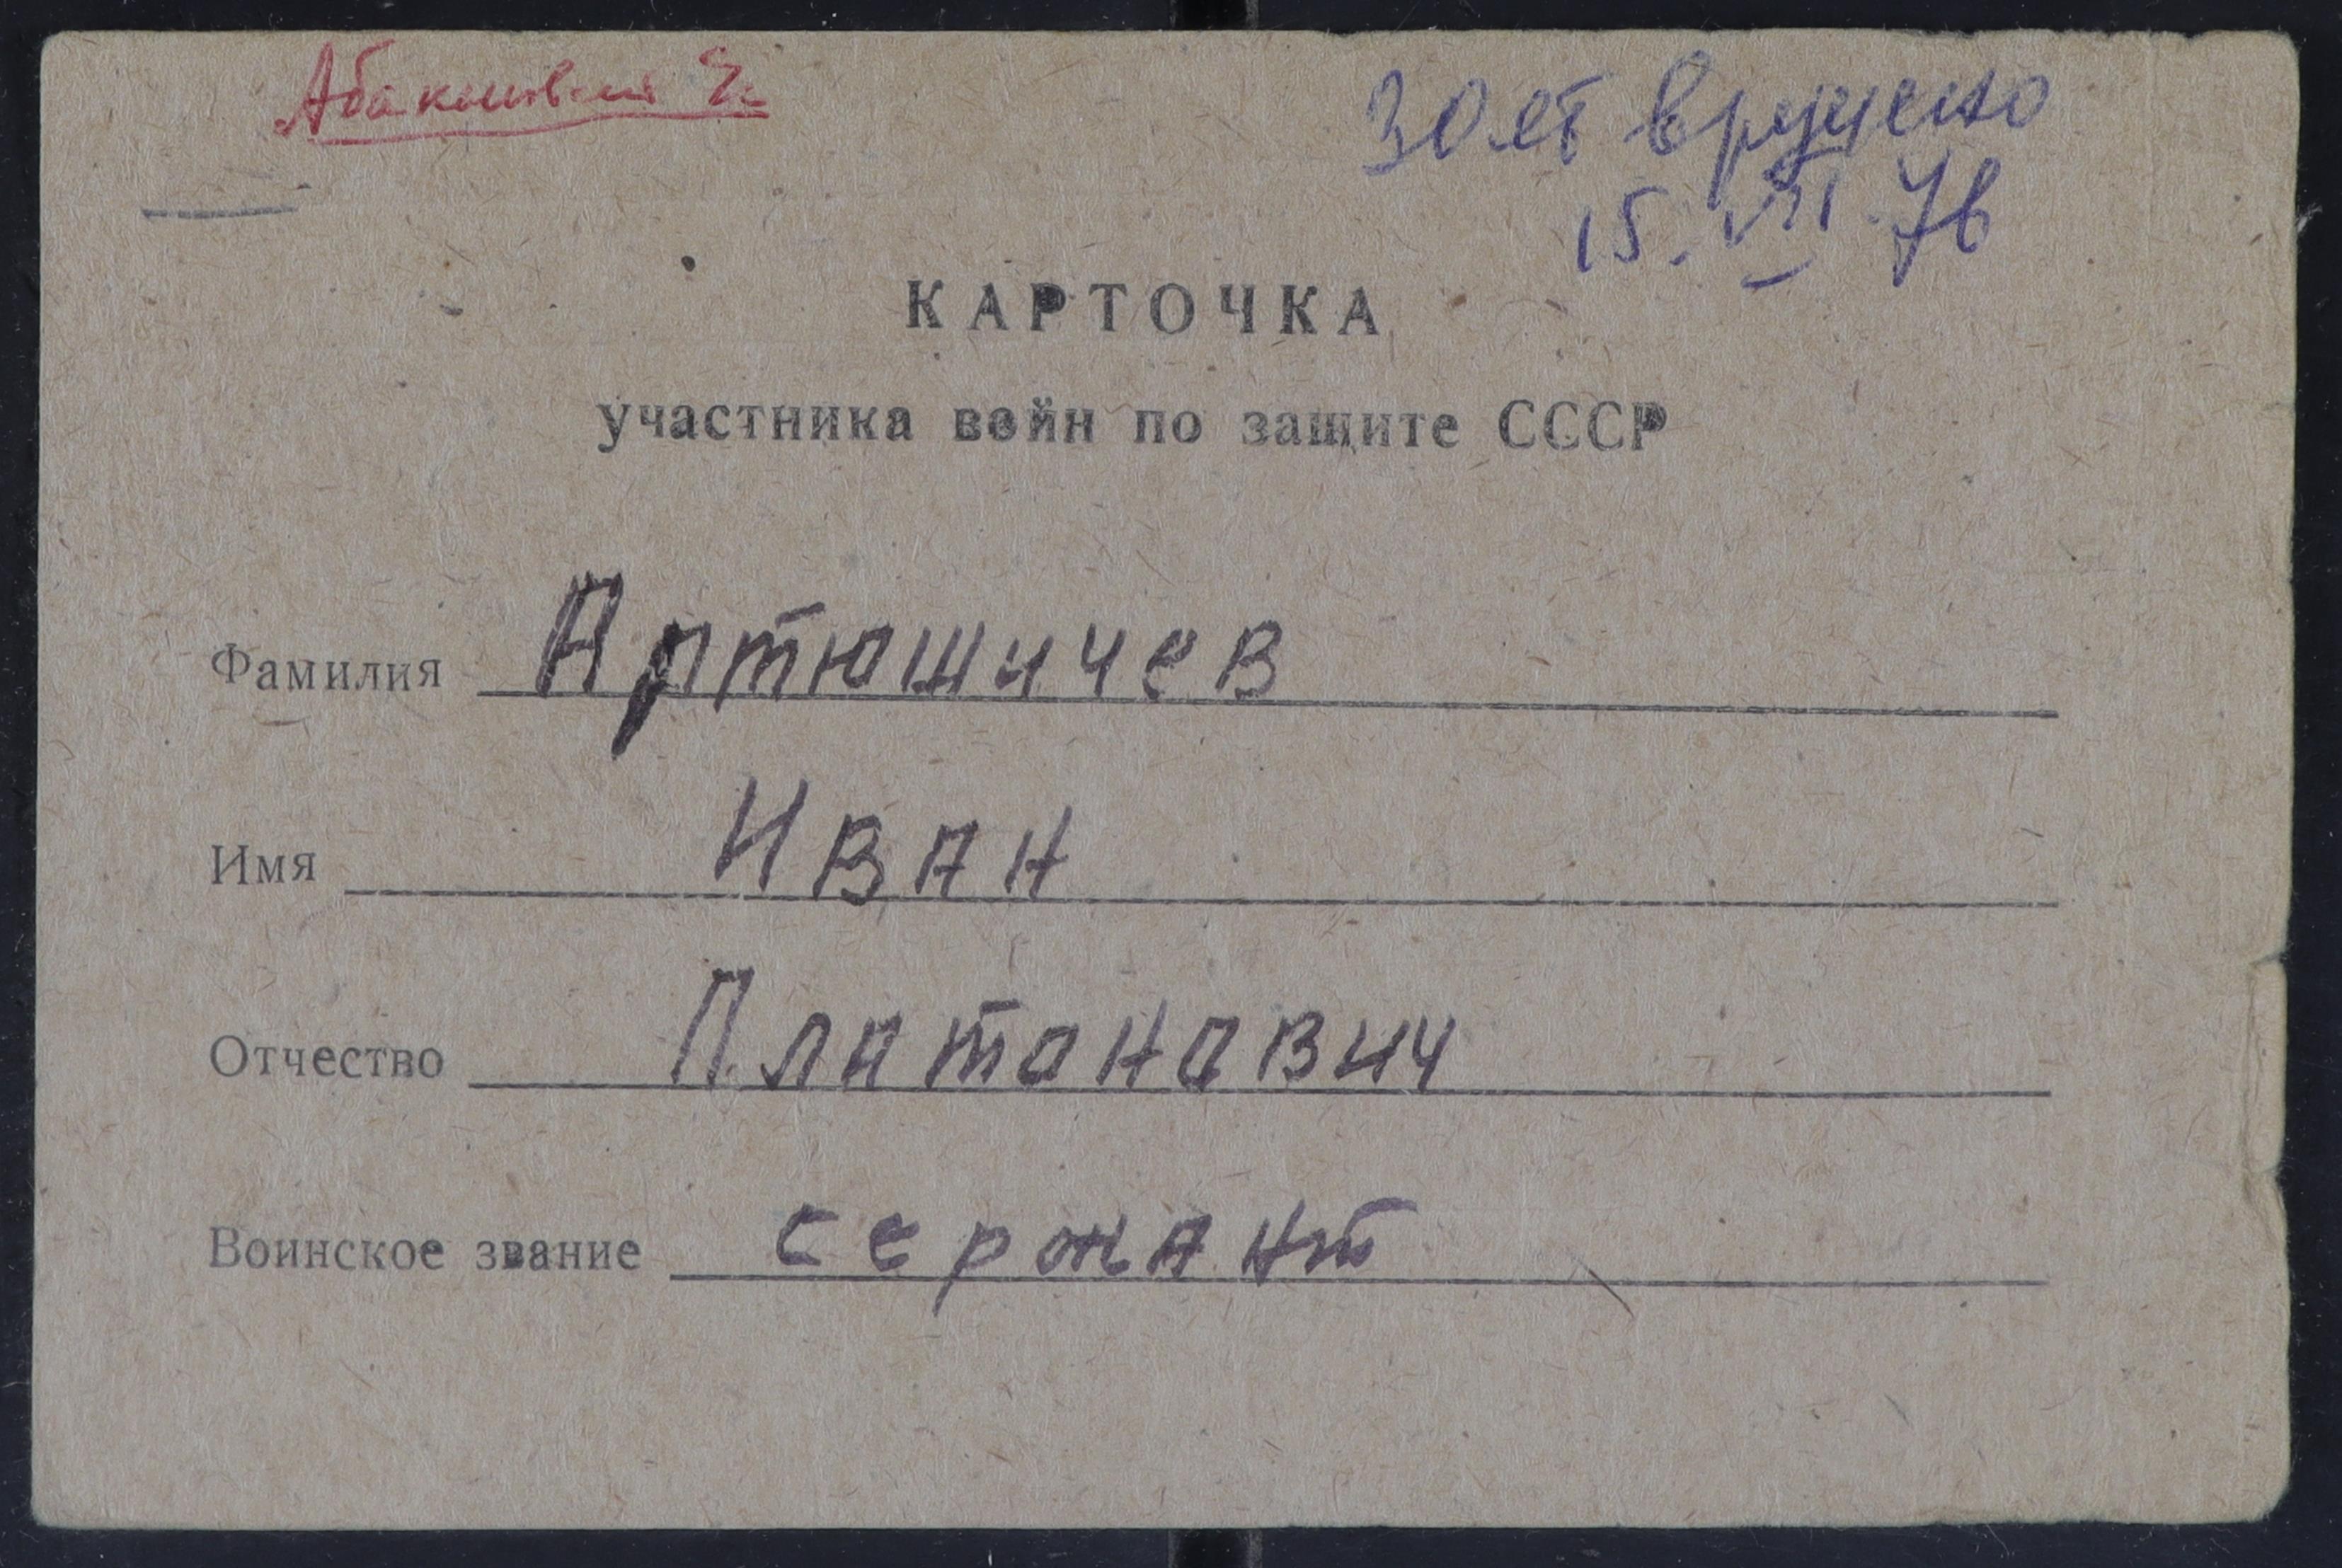 30 лет вручено
15. VII 76
КАРТОЧКА
участника войн по защите СССР
Фамилия Артюшичев
Имя Иван
Отчество Платанавич
Воинское звание сержант